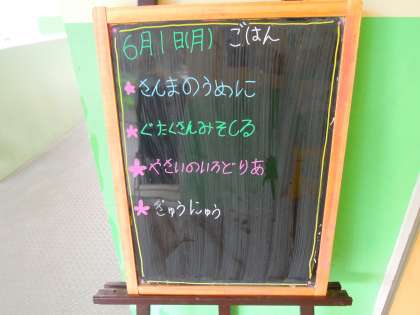 6月1日(月) ごはん
さんまのうめに
ぐたくさんみそしる
やさいのいろどりあ
ぎゅうにゅう